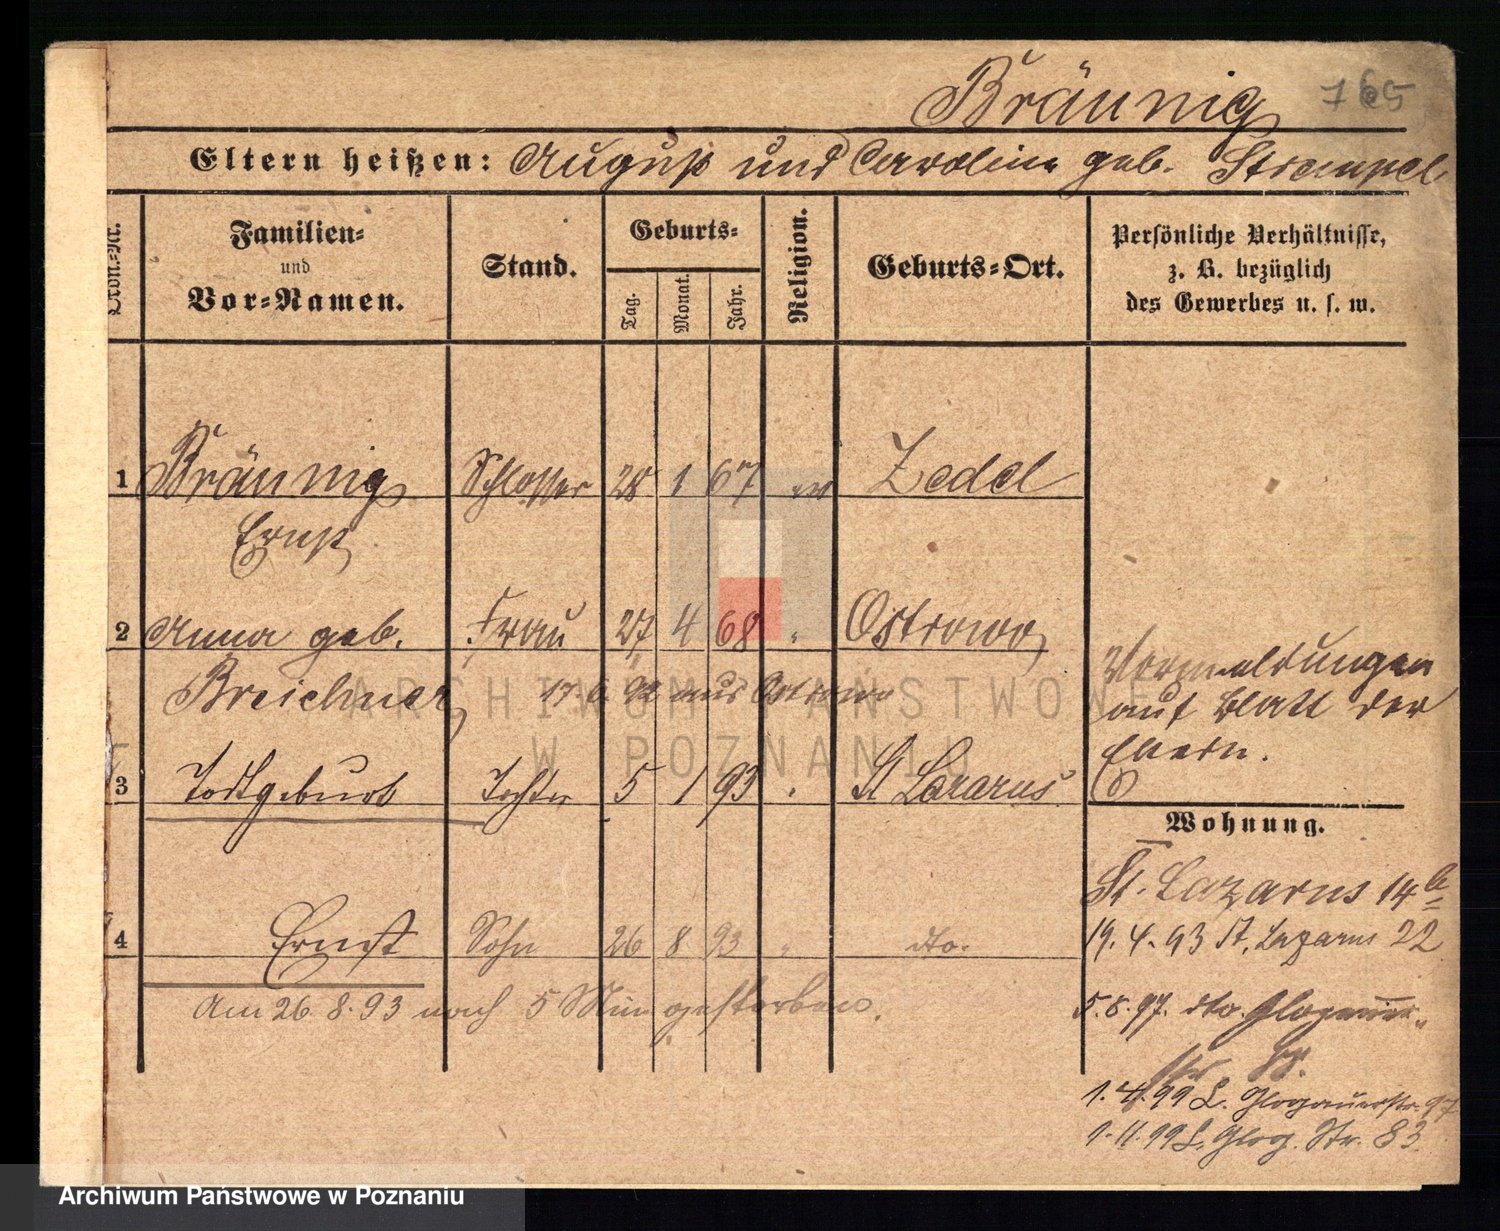 Bräunig 765
Eltern heißen: August und Caroline geb. Strempel
Ordn.-Nr.
Familien-
und
Vor-Namen.
Stand.
Geburts-
Tag.
Monat.
Jahr.
Religion.
Geburts-Ort.
Persönliche Verhältnisse,
z. B. bezüglich
des Gewerbes u. s. w.
1 Bräunig Schlosser 28 1 67 ev Zedel
Ernst
2 Anna geb. Frau 27 4 68 " Ostrowo
Breichner 17. 6. 92 aus Ostrowo
3 Todtgeburt Tochter 5 1 93 " St Lazarus
4 Ernst Sohn 26 8 93 " dto.
Am 26. 8. 93 nach 5 Min gestorben.
Vermeldungen
auf Blatt der
Eltern.
Wohnung.
St. Lazarus 14b
19. 4. 93 St. Lazarus 22
5. 8. 97. dto. Glogauer-
str.
1. 4. 99 L. Glogauerstr. 97
1. 11. 99 L. Glog. Str. 83.
ARCHIWUM PAŃSTWOWE
W POZNANIU
Archiwum Państwowe w Poznaniu